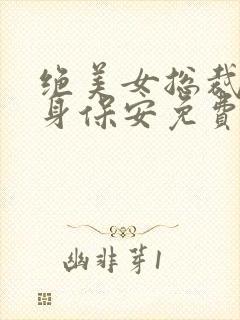 绝美女总裁
身保安免费
幽非芽1